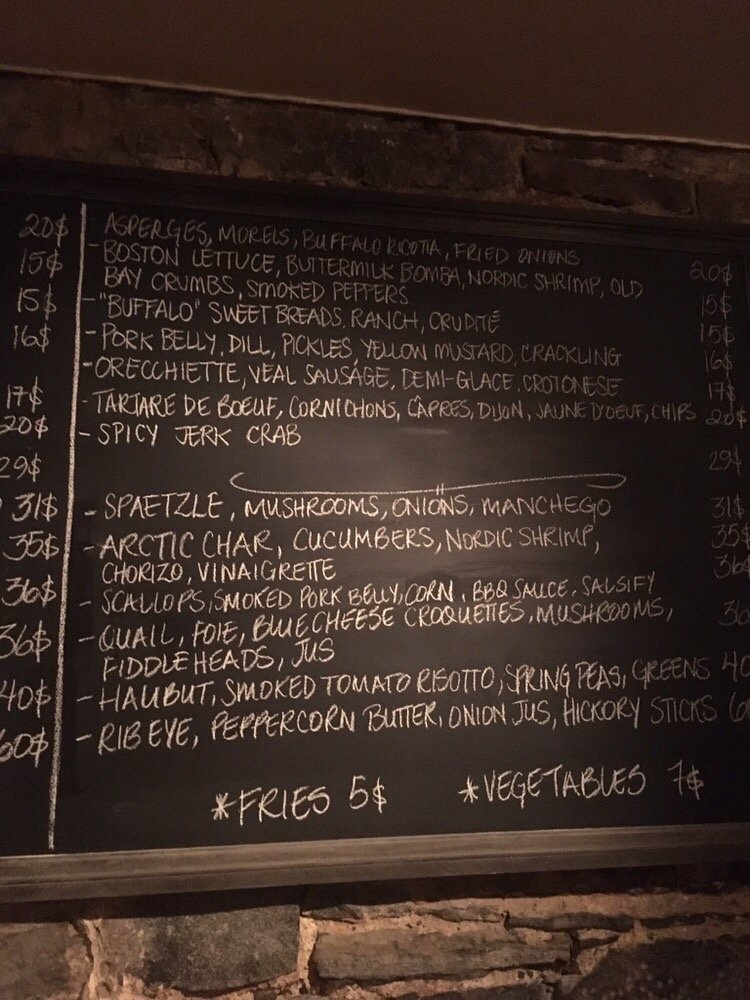 20$
15$
15$
16$
17$
20$
29$
31$
35$
36$
36$
40$
60$
- ASPERGES, MORELS, BUFFALO RICOTTA, FRIED ONIONS 20$
- BOSTON LETTUCE, BUTTERMILK BOMBA, NORDIC SHRIMP, OLD
BAY CRUMBS, SMOKED PEPPERS 15$
- "BUFFALO" SWEET BREADS, RANCH, CRUDITÉ 15$
- PORK BELLY, DILL, PICKLES, YELLOW MUSTARD, CRACKLING 16$
- ORECCHIETTE, VEAL SAUSAGE, DEMI-GLACE, CROTONESE 17$
- TARTARE DE BOEUF, CORNICHONS, CÂPRES, DIJON, JAUNE D'OEUF, CHIPS 20$
- SPICY JERK CRAB 29$
- SPAETZLE, MUSHROOMS, ONIONS, MANCHEGO 31$
- ARCTIC CHAR, CUCUMBERS, NORDIC SHRIMP, 35$
CHORIZO, VINAIGRETTE
- SCALLOPS, SMOKED PORK BELLY, CORN, BBQ SAUCE, SALSIFY 36
- QUAIL, FOIE, BLUE CHEESE CROQUETTES, MUSHROOMS, 36
FIDDLEHEADS, JUS
- HALIBUT, SMOKED TOMATO RISOTTO, SPRING PEAS, GREENS 40
- RIB EYE, PEPPERCORN BUTTER, ONION JUS, HICKORY STICKS 6
*FRIES 5$ *VEGETABLES 7$